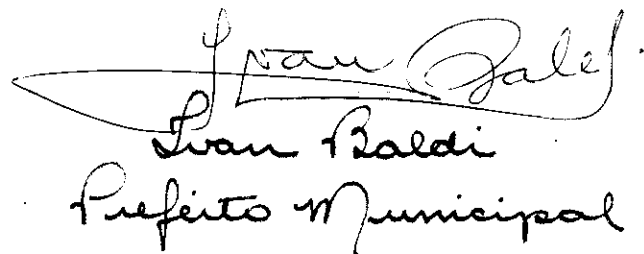 Ivan Baldi
Ivan Baldi
Prefeito Municipal